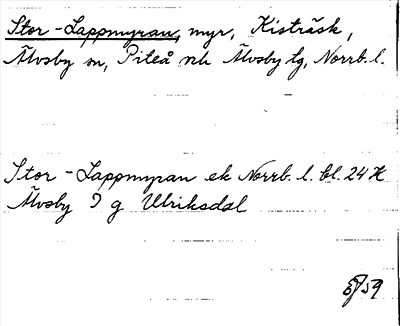 Stor-Lappmyran, myr, Kisträsk,
Älvsby sn, Piteå nh Älvsby tg, Norrb. l.
Stor-Lappmyran ek Norrb. l. bl. 24 H
Älvsby I g Ulriksdal
59